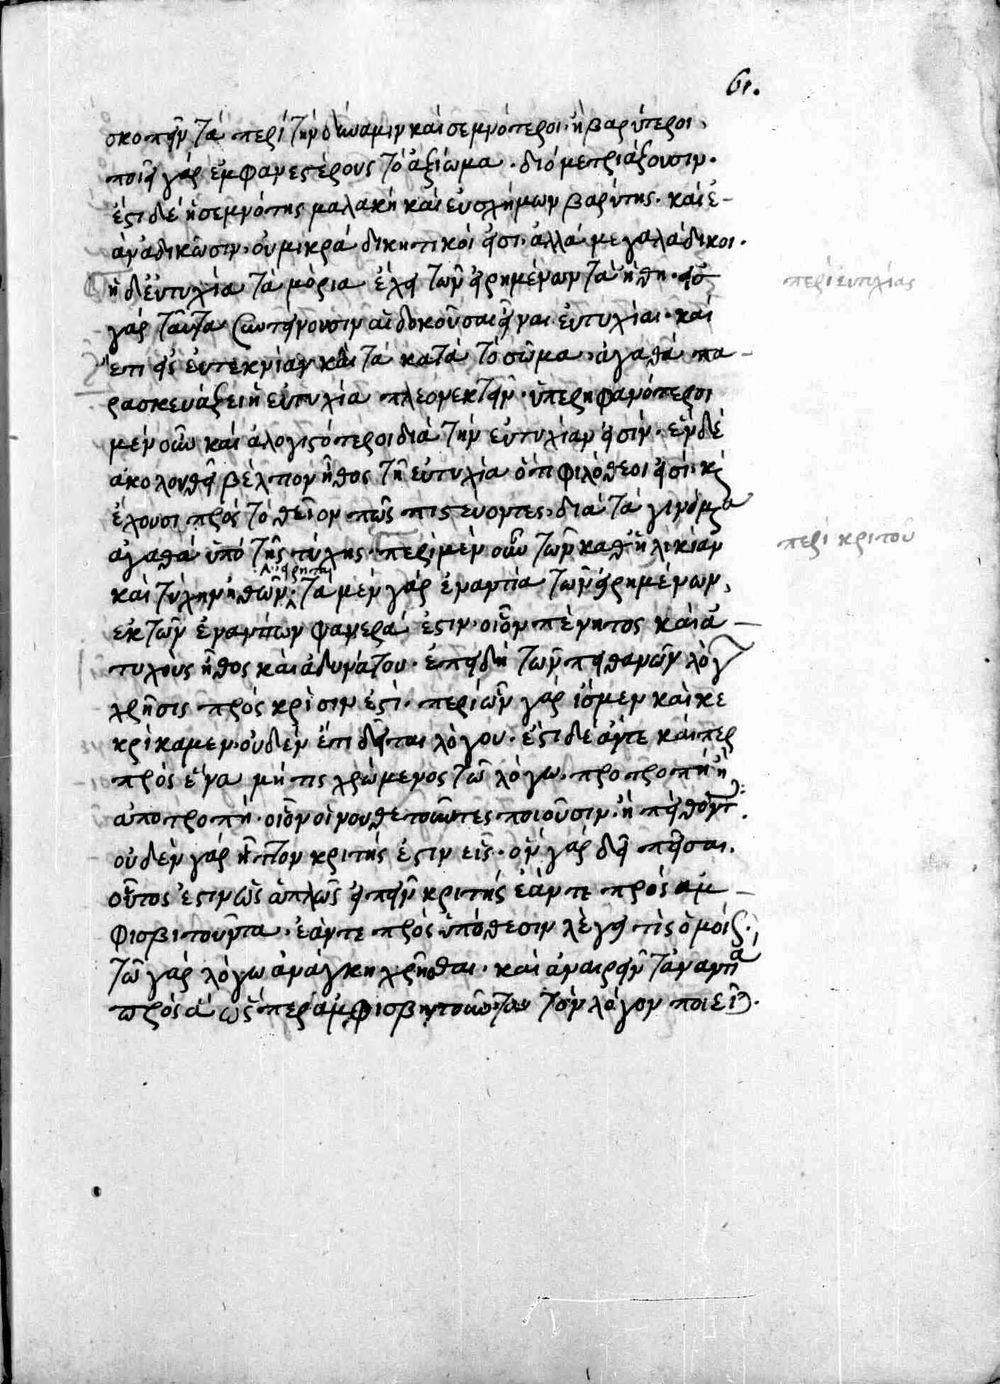 61.
σκοπεῖν τὰ περὶ τὴν δύναμιν καὶ σεμνότεροι ἢ βαρύτεροι.
ποιεῖ γὰρ ἐμφανεστέρους τὸ ἀξίωμα. διὸ μετριάζουσιν.
ἔστι δὲ ἡ σεμνότης μαλακὴ καὶ εὐσχήμων βαρύτης. καὶ ἐ-
ὰν ἀδικῶσιν. οὐ μικρὰ δικητικοί εἰσι. ἀλλὰ μεγαλάδικοι.
ἡ δ' εὐτυχία τὰ μόρια ἔχει τῶν εἰρημένων τὰ ἤθη. εἰς
περὶ εὐτυχίας
γὰρ ταῦτα συντείνουσιν αἱ δοκοῦσαι εἶναι εὐτυχίαι. καὶ
ἔτι εἰς εὐτεκνίαν καὶ τὰ κατὰ τὸ σῶμα ἀγαθὰ πα-
ρασκευάζει ἡ εὐτυχία πλεονεκτεῖν. ὑπερηφανότεροι
μὲν οὖν καὶ ἀλογιστότεροι διὰ τὴν εὐτυχίαν εἰσίν. ἓν δὲ
ἀκολουθεῖ βέλτιον ἦθος τῇ εὐτυχία ὅτι φιλόθεοί εἰσι. καὶ
ἔχουσι πρὸς τὸ θεῖον πῶς πιστεύοντες. διὰ τὰ γινόμενα
ἀγαθὰ ὑπὸ τῆς τύχης. περὶ μὲν οὖν τῶν καθ' ἡλικίαν
περὶ κριτοῦ
εἴρηται
καὶ τύχην ἠθῶν. τὰ μὲν γὰρ ἐναντία τῶν εἰρημένων,
ἐκ τῶν ἐναντίων φανερά ἐστιν. οἷον πένητος καὶ ἀ-
τυχοῦς ἦθος καὶ ἀδυνάτου. ἐπειδὴ τῶν πιθανῶν λόγ
χρῆσις πρὸς κρίσιν ἐστὶ. περὶ ὧν γὰρ ἴσμεν καὶ κε
κρίκαμεν. οὐδὲν ἔτι δεῖται λόγου. ἔστι δὲ ἄντε καίπερ
πρὸς ἕνα μή τις χρώμενος τῶ λόγω. προτροπὴ ἢ
ἀποτροπή. οἷον οἱ νουθετοῦντες ποιοῦσιν. ἢ πείθοντ.
οὐδὲν γὰρ ἧττον κριτής ἐστιν εἷς. ὃν γὰρ δεῖ πεῖσαι.
οὗτός ἐστιν ὡς ἁπλῶς εἰπεῖν κριτής ἐάντε πρὸς ἀμ-
φισβιτοῦντα. ἐάντε πρὸς ὑπόθεσιν λέγῃ τὶς ὁμοίως.
τῶ γὰρ λόγω ἀνάγκη χρῆσθαι. καὶ ἀναιρεῖν τἀναντία
πρὸς ἃ ὥσπερ ἀμφισβητοῦντα τὸν λόγον ποιεῖ.